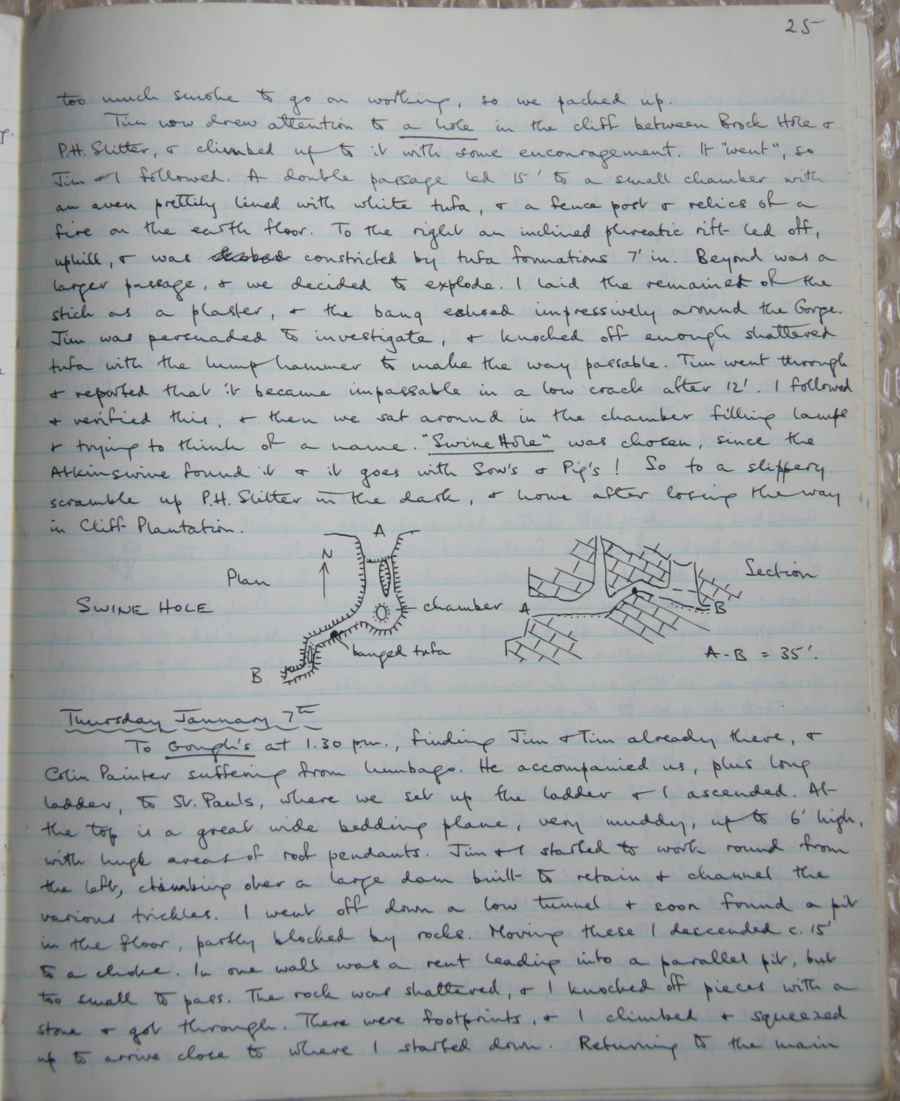 25
too much smoke to go on working, so we packed up.
Tim now drew attention to a hole in the cliff between Brock Hole &
P.H. Slitter, & climbed up to it with some encouragement. It "went", so
Jim & I followed. A double passage led 15' to a small chamber with
an aven prettily lined with white tufa, & a fence post & relics of a
fire on the earth floor. To the right an inclined phreatic rift led off,
uphill, & was constricted by tufa formations 7' in. Beyond was a
larger passage, & we decided to explode. I laid the remained of the
stick as a plaster, & the bang echoed impressively around the Gorge.
Jim was persuaded to investigate, & knocked off enough shattered
tufa with the lump hammer to make the way passable. Tim went through
& reported that it became impassable in a low crack after 12'. I followed
& verified this, & then we sat around in the chamber filling lamps
& trying to think of a name. "Swine Hole" was chosen, since the
Atkinswine found it & it goes with Sow's & Pig's! So to a slippery
scramble up P.H. Slitter in the dark, & home after losing the way
in Cliff Plantation.
A
N
Plan
Section
SWINE HOLE
chamber
A
B
banged tufa
A-B = 35'.
B
Thursday January 7th
To Gough's at 1.30 pm., finding Jim & Tim already there, &
Colin Painter suffering from lumbago. He accompanied us, plus long
ladder, to St. Pauls, where we set up the ladder & I ascended. At
the top is a great wide bedding plane, very muddy, up to 6' high,
with huge areas of roof pendants. Jim & I started to work round from
the left, climbing over a large dam built to retain & channel the
various trickles. I went off down a low tunnel & soon found a pit
in the floor, partly blocked by rocks. Moving these I descended c. 15'
to a choke. In one wall was a rent leading into a parallel pit, but
too small to pass. The rock was shattered, & I knocked off pieces with a
stone & got through. There were footprints, & I climbed & squeezed
up to arrive close to where I started down. Returning to the main